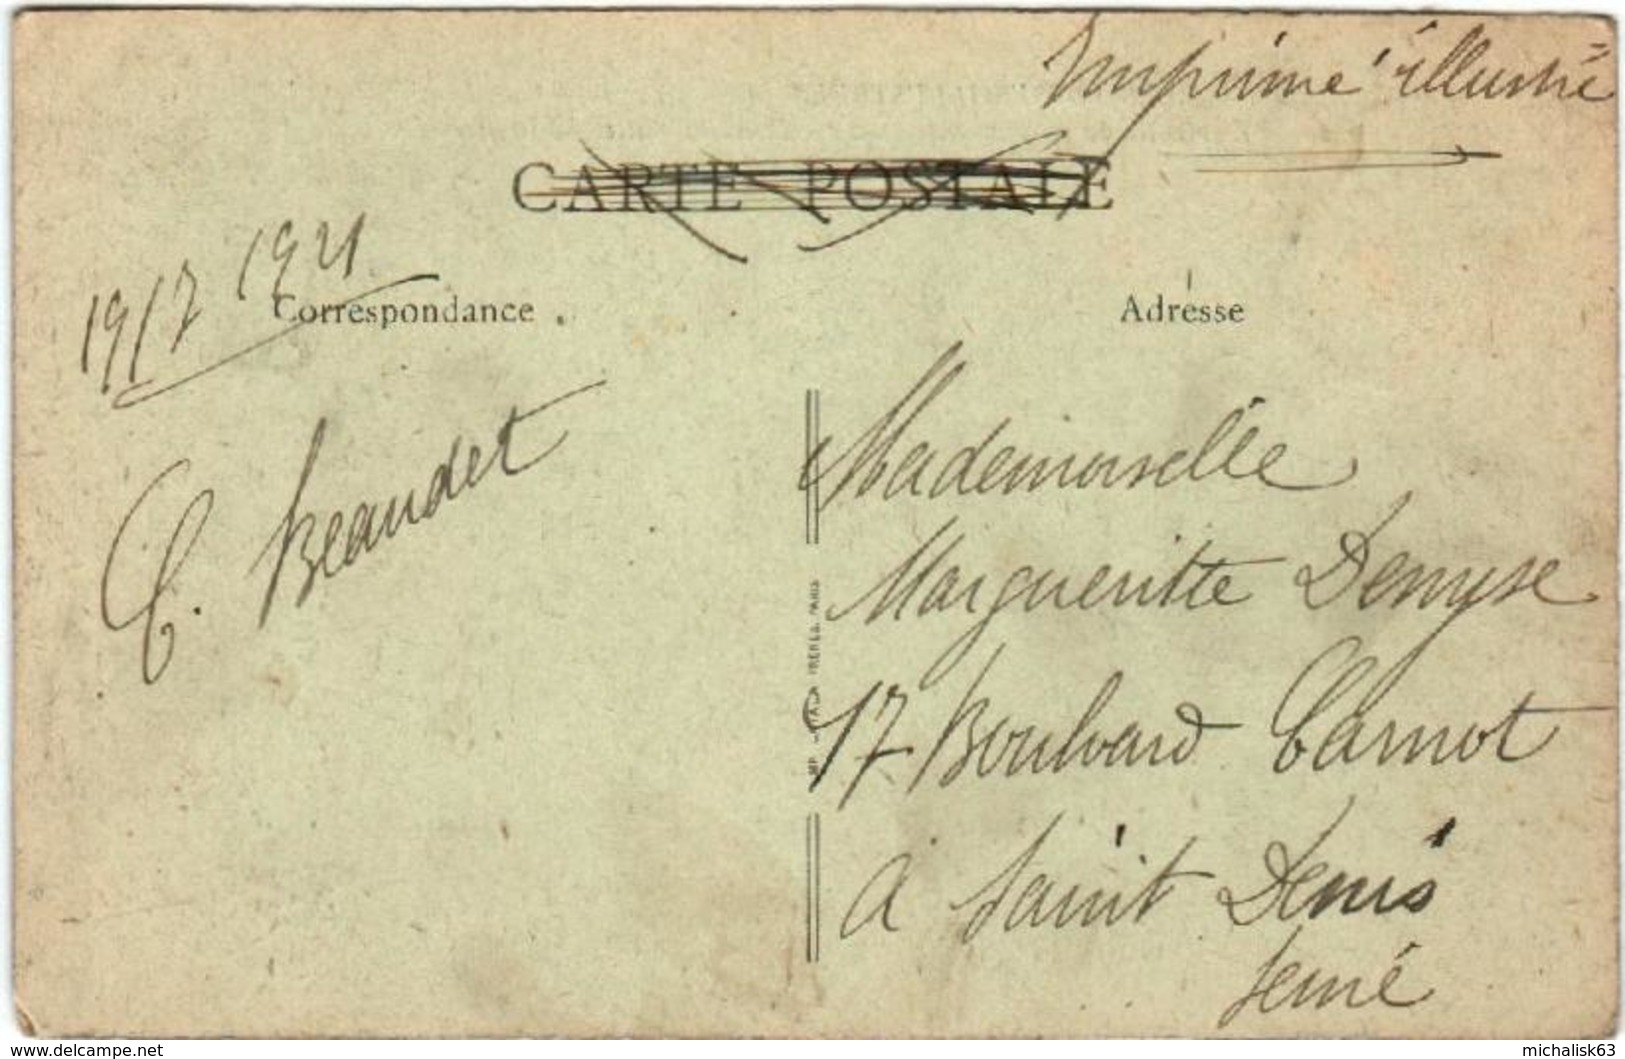 Imprimé illustré
CARTE POSTALE
19/7 1921
Correspondance
Adresse
C. Beaudet
Mademoiselle
Margueritte Denyse
17 Boulvard Carnot
à Saint Denis
Seine
FRERES, PARIS
www.delcampe.net
michalisk63